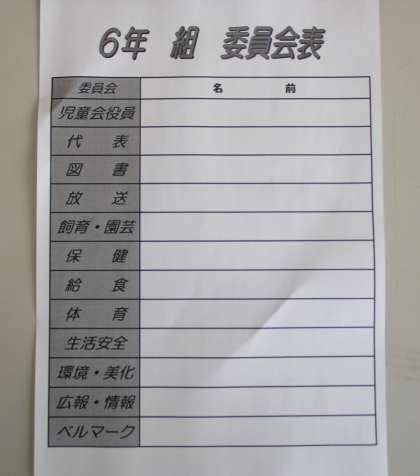 6年 組 委員会表
委員会 名 前
児童会役員
代 表
図 書
放 送
飼育・園芸
保 健
給 食
体 育
生活安全
環境・美化
広報・情報
ベルマーク